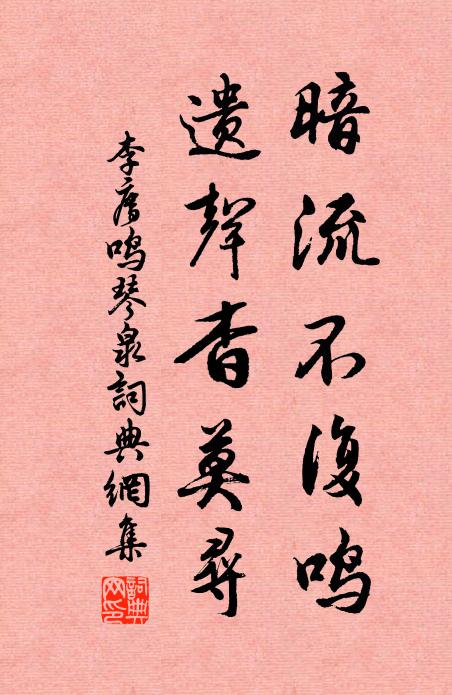 暗流不復鳴
遺聲杳莫尋
李廌鳴琴泉詞典網集
詞典網印